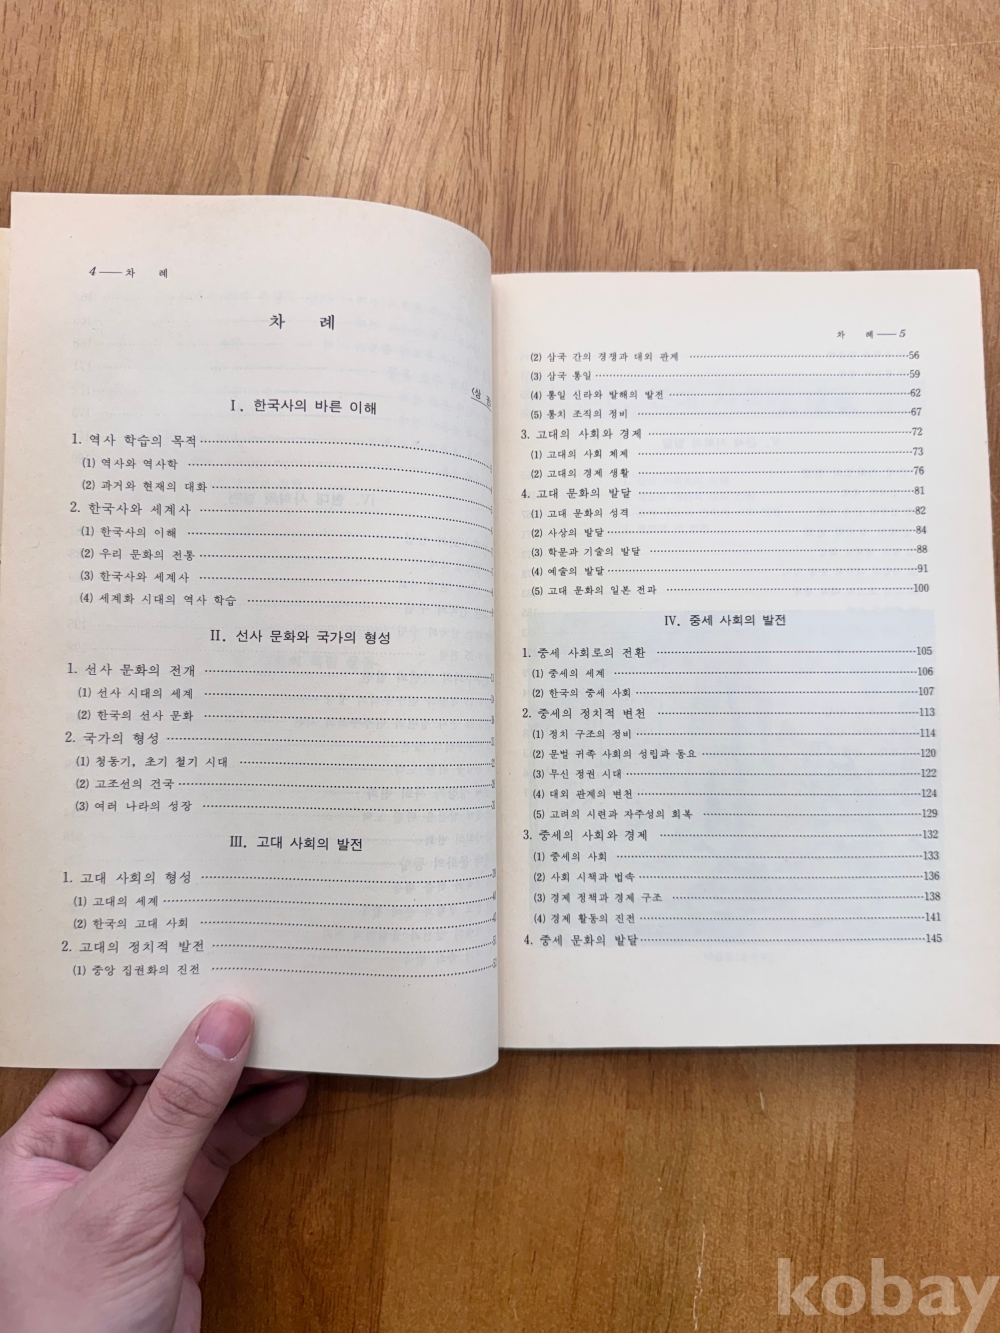 4 — 차 례
차 례
(상 권
I. 한국사의 바른 이해
1. 역사 학습의 목적
(1) 역사와 역사학
(2) 과거와 현재의 대화
2. 한국사와 세계사
(1) 한국사의 이해
(2) 우리 문화의 전통
(3) 한국사와 세계사
(4) 세계화 시대의 역사 학습
II. 선사 문화와 국가의 형성
1. 선사 문화의 전개
(1) 선사 시대의 세계
(2) 한국의 선사 문화
2. 국가의 형성
(1) 청동기, 초기 철기 시대
(2) 고조선의 건국
(3) 여러 나라의 성장
III. 고대 사회의 발전
1. 고대 사회의 형성
(1) 고대의 세계
(2) 한국의 고대 사회
2. 고대의 정치적 발전
(1) 중앙 집권화의 진전
차 례 — 5
(2) 삼국 간의 경쟁과 대외 관계 56
(3) 삼국 통일 59
(4) 통일 신라와 발해의 발전 62
(5) 통치 조직의 정비 67
3. 고대의 사회와 경제 72
(1) 고대의 사회 체제 73
(2) 고대의 경제 생활 76
4. 고대 문화의 발달 81
(1) 고대 문화의 성격 82
(2) 사상의 발달 84
(3) 학문과 기술의 발달 88
(4) 예술의 발달 91
(5) 고대 문화의 일본 전파 100
IV. 중세 사회의 발전
1. 중세 사회로의 전환 105
(1) 중세의 세계 106
(2) 한국의 중세 사회 107
2. 중세의 정치적 변천 113
(1) 정치 구조의 정비 114
(2) 문벌 귀족 사회의 성립과 동요 120
(3) 무신 정권 시대 122
(4) 대외 관계의 변천 124
(5) 고려의 시련과 자주성의 회복 129
3. 중세의 사회와 경제 132
(1) 중세의 사회 133
(2) 사회 시책과 법속 136
(3) 경제 정책과 경제 구조 138
(4) 경제 활동의 진전 141
4. 중세 문화의 발달 145
kobay